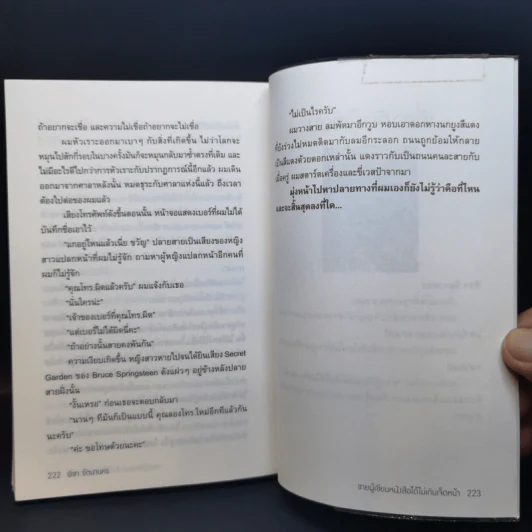 ถ้าอยากจะเชื่อ และความไม่เชื่อถ้าอยากจะไม่เชื่อ
ผมหัวเราะออกมาเบาๆ กับสิ่งที่เกิดขึ้น ไม่ว่าโลกจะ
หมุนไปสักกี่รอบในบางครั้งมันก็จะหมุนกลับมาซ้ำตรงที่เดิม และ
ไม่มีอะไรดีไปกว่าการหัวเราะกับปรากฏการณ์นี้อีกแล้ว ผมเดิน
ออกมาจากศาลาหลังนั้น หมดธุระกับศาลาแห่งนี้แล้ว ถึงเวลา
ต้องไปต่อของผมแล้ว
เสียงโทรศัพท์ดังขึ้นตอนนั้น หน้าจอแสดงเบอร์ที่ผมไม่ได้
บันทึกชื่อเอาไว้
"แกอยู่ไหนแล้วเนี่ย ขวัญ" ปลายสายเป็นเสียงของหญิง
สาวแปลกหน้าที่ผมไม่รู้จัก ถามหาผู้หญิงแปลกหน้าอีกคนที่
ผมก็ไม่รู้จัก
"คุณโทร.ผิดแล้วครับ" ผมแจ้งกับเธอ
"นั่นใครน่ะ"
"เจ้าของเบอร์ที่คุณโทร.ผิด"
"แต่เบอร์ไม่ได้ผิดนี่คะ"
"ถ้าอย่างนั้นสายคงพันกัน"
ความเงียบเกิดขึ้น หญิงสาวหายไปจนได้ยินเสียง Secret
Garden ของ Bruce Springsteen ดังแผ่วๆ อยู่ข้างหลังปลาย
สายฝั่งนั้น
"งั้นเหรอ" ก่อนเธอจะตอบกลับมา
"นานๆ ทีมันก็เป็นแบบนี้ คุณลองโทร.ใหม่อีกทีแล้วกัน
นะครับ"
"ค่ะ ขอโทษด้วยนะคะ"
222 พิชา รัตนานคร
"ไม่เป็นไรครับ"
ผมวางสาย ลมพัดมาอีกวูบ หอบเอาดอกหางนกยูงสีแดง
ที่ยังร่วงไม่หมดติดมากับลมอีกระลอก ถนนถูกย้อมให้กลาย
เป็นสีแดงด้วยดอกเหล่านั้น แดงราวกับเป็นถนนคนละสายกับ
เมื่อครู่ ผมสตาร์ตเครื่องและขี่เวสป้าจากมา
มุ่งหน้าไปหาปลายทางที่ผมเองก็ยังไม่รู้ว่าคือที่ไหน
และจะสิ้นสุดลงที่ใด...
ชายผู้เขียนหนังสือได้ไม่เกินเจ็ดหน้า 223